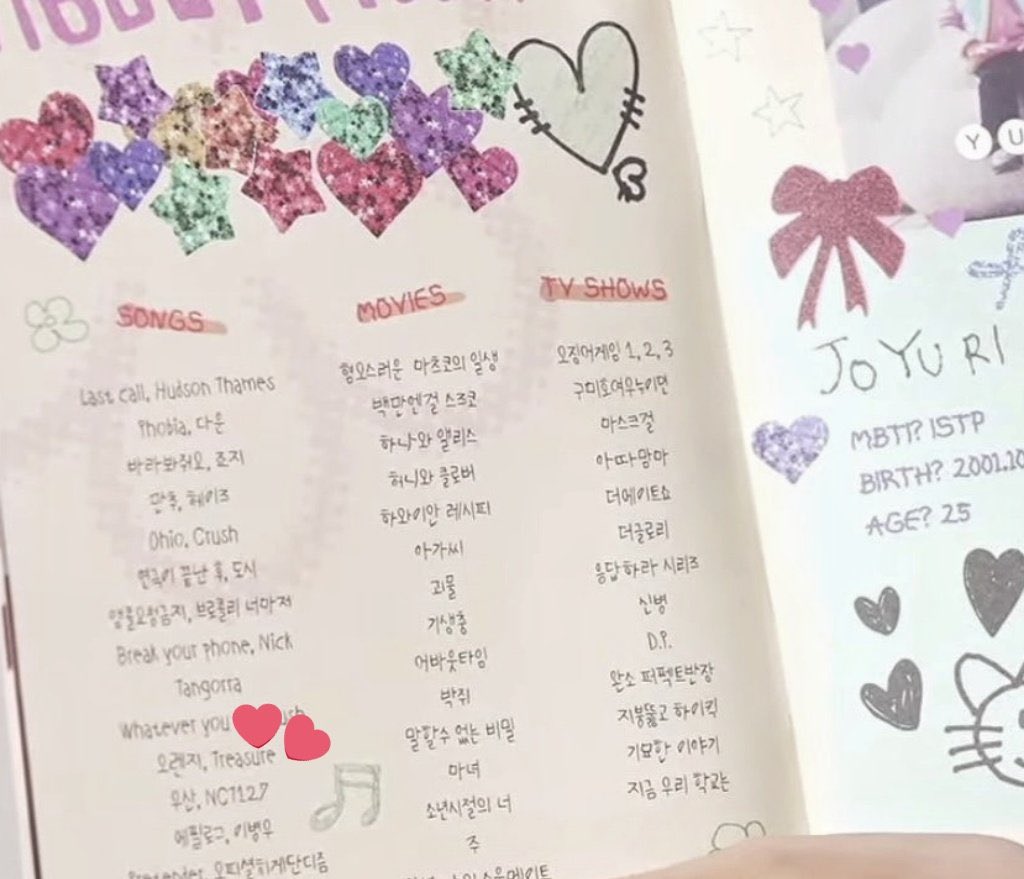 SONGS
Last call, Hudson Thames
Phobia, 다운
바라봐줘요, 죠지
만추, 헤이즈
Ohio, Crush
연극이 끝난 후, 도시
앵콜요청금지, 브로콜리 너마저
Break your phone, Nick
Tangorra
Whatever you
오렌지, Treasure
우산, NCT127
에필로그, 이병우
오피셜히게단디즘
MOVIES
혐오스러운 마츠코의 일생
백만엔걸 스즈코
하나와 앨리스
허니와 클로버
하와이안 레시피
아가씨
괴물
기생충
어바웃타임
박쥐
말할수 없는 비밀
마녀
소년시절의 너
주
소울메이트
TV SHOWS
오징어게임 1, 2, 3
구미호여우누이뎐
마스크걸
아따맘마
더에이트쇼
더글로리
응답하라 시리즈
신병
D.P.
완소 퍼펙트반장
지붕뚫고 하이킥
기묘한 이야기
지금 우리 학교는
Y U
JOYURI
MBTI? ISTP
BIRTH? 2001.10
AGE? 25